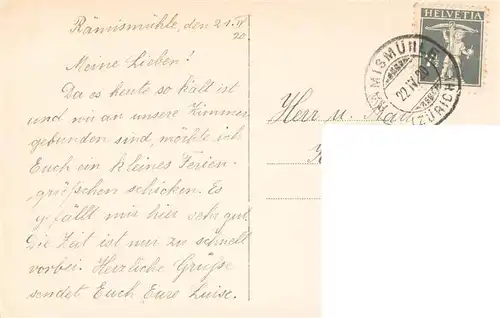 Rämismühle, den 21.IV
20
Meine Lieben!
Da es heute so kalt ist
und wir an unsere Zimmer
gebunden sind, möchte ich
Euch ein kleines Ferien-
grüsschen schicken. Es
gefällt mir hier sehr gut.
Die Zeit ist nur zu schnell
vorbei. Herzliche Grüsse
sendet Euch Eure Luise.
HELVETIA
RÄMISMÜHLE
22.IV.20
(ZÜRICH)
Herr u.